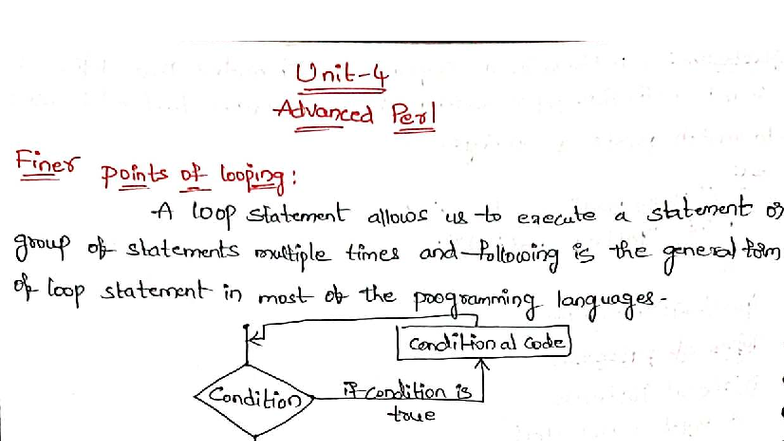 Unit-4
Advanced Perl
Finer points of looping:
A loop statement allows us to execute a statement or
group of statements multiple times and following is the general form
of loop statement in most of the programming languages.
conditional code
Condition
if condition is
true